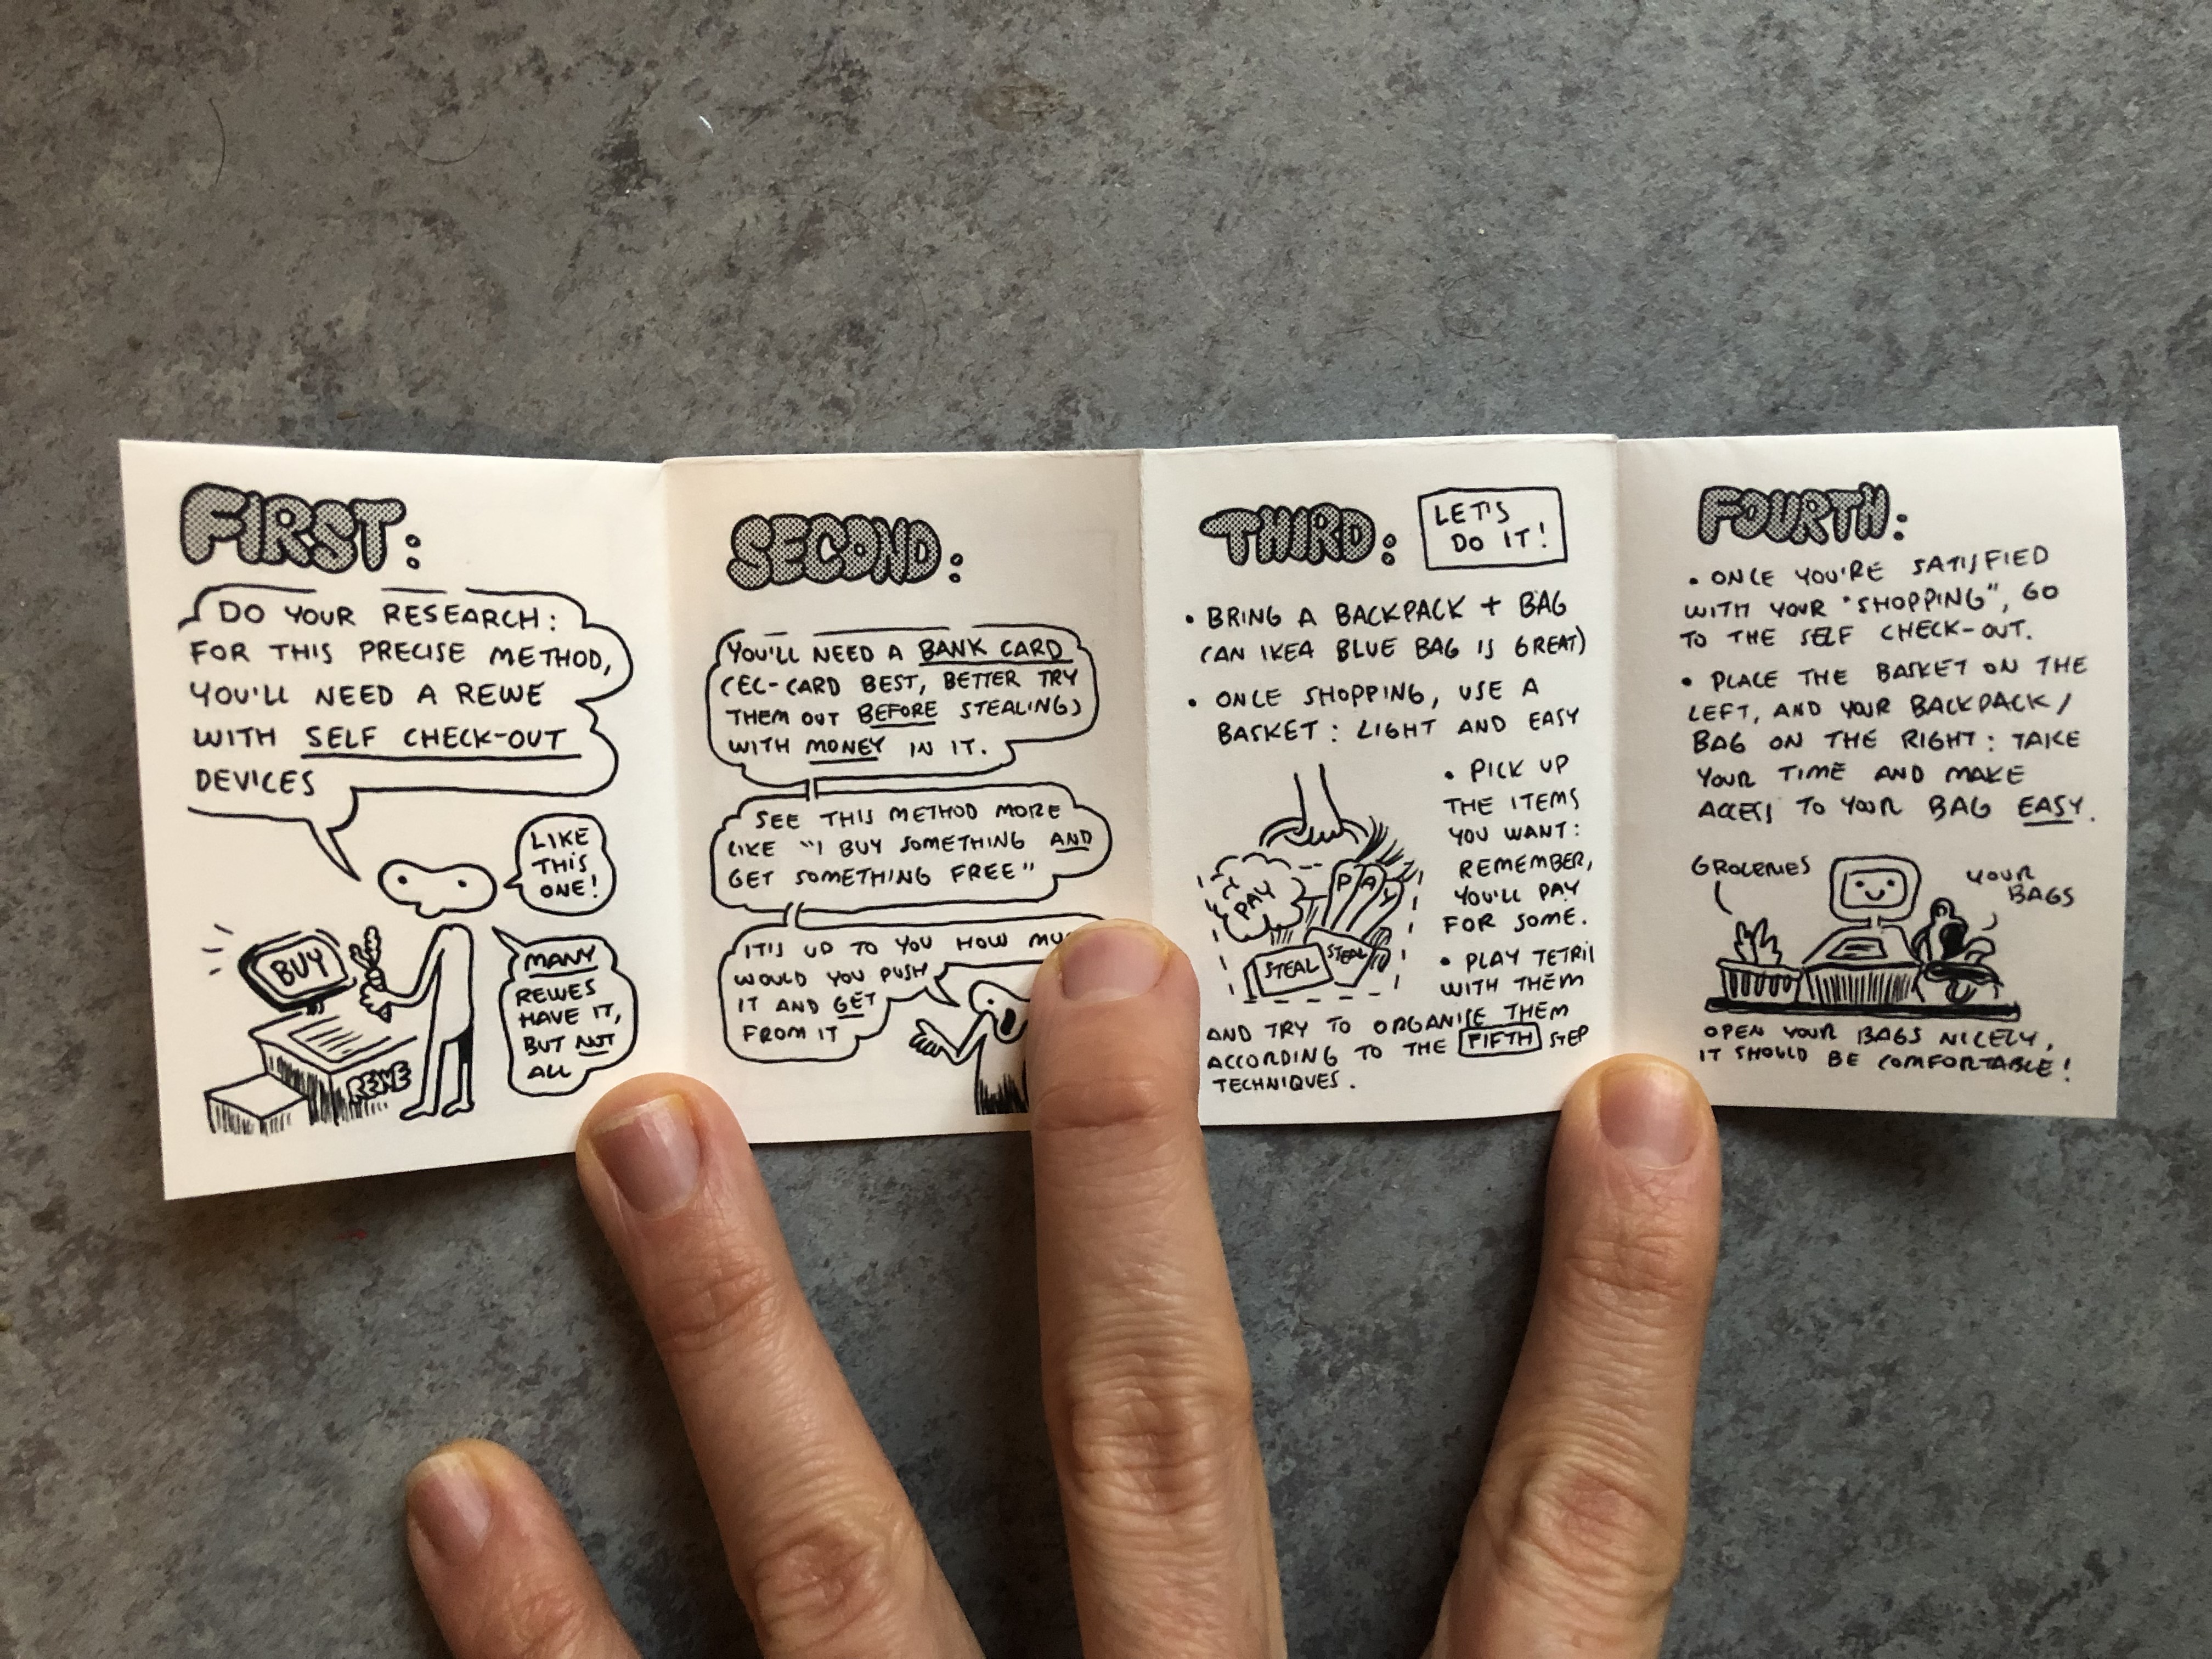 FIRST:
DO YOUR RESEARCH:
FOR THIS PRECISE METHOD,
YOU'LL NEED A REWE
WITH SELF CHECK-OUT
DEVICES
LIKE
THIS
ONE!
BUY
MANY
REWES
HAVE IT,
BUT NOT
ALL
REWE
SECOND:
YOU'LL NEED A BANK CARD
(EC-CARD BEST, BETTER TRY
THEM OUT BEFORE STEALING)
WITH MONEY IN IT.
SEE THIS METHOD MORE
LIKE "I BUY SOMETHING AND
GET SOMETHING FREE"
IT'S UP TO YOU HOW
WOULD YOU PUSH
IT AND GET
FROM IT
THIRD:
LET'S
DO IT!
• BRING A BACKPACK + BAG
(AN IKEA BLUE BAG IS GREAT)
• ONCE SHOPPING, USE A
BASKET: LIGHT AND EASY
• PICK UP
THE ITEMS
YOU WANT:
REMEMBER,
YOU'LL PAY
FOR SOME.
PAY
PAY
STEAL
STEAL
• PLAY TETRIS
WITH THEM
AND TRY TO ORGANISE THEM
ACCORDING TO THE FIFTH STEP
TECHNIQUES.
FOURTH:
• ONCE YOU'RE SATISFIED
WITH YOUR "SHOPPING", GO
TO THE SELF CHECK-OUT.
• PLACE THE BASKET ON THE
LEFT, AND YOUR BACKPACK/
BAG ON THE RIGHT: TAKE
YOUR TIME AND MAKE
ACCESS TO YOUR BAG EASY.
GROCERIES
YOUR
BAGS
OPEN YOUR BAGS NICELY,
IT SHOULD BE COMFORTABLE!